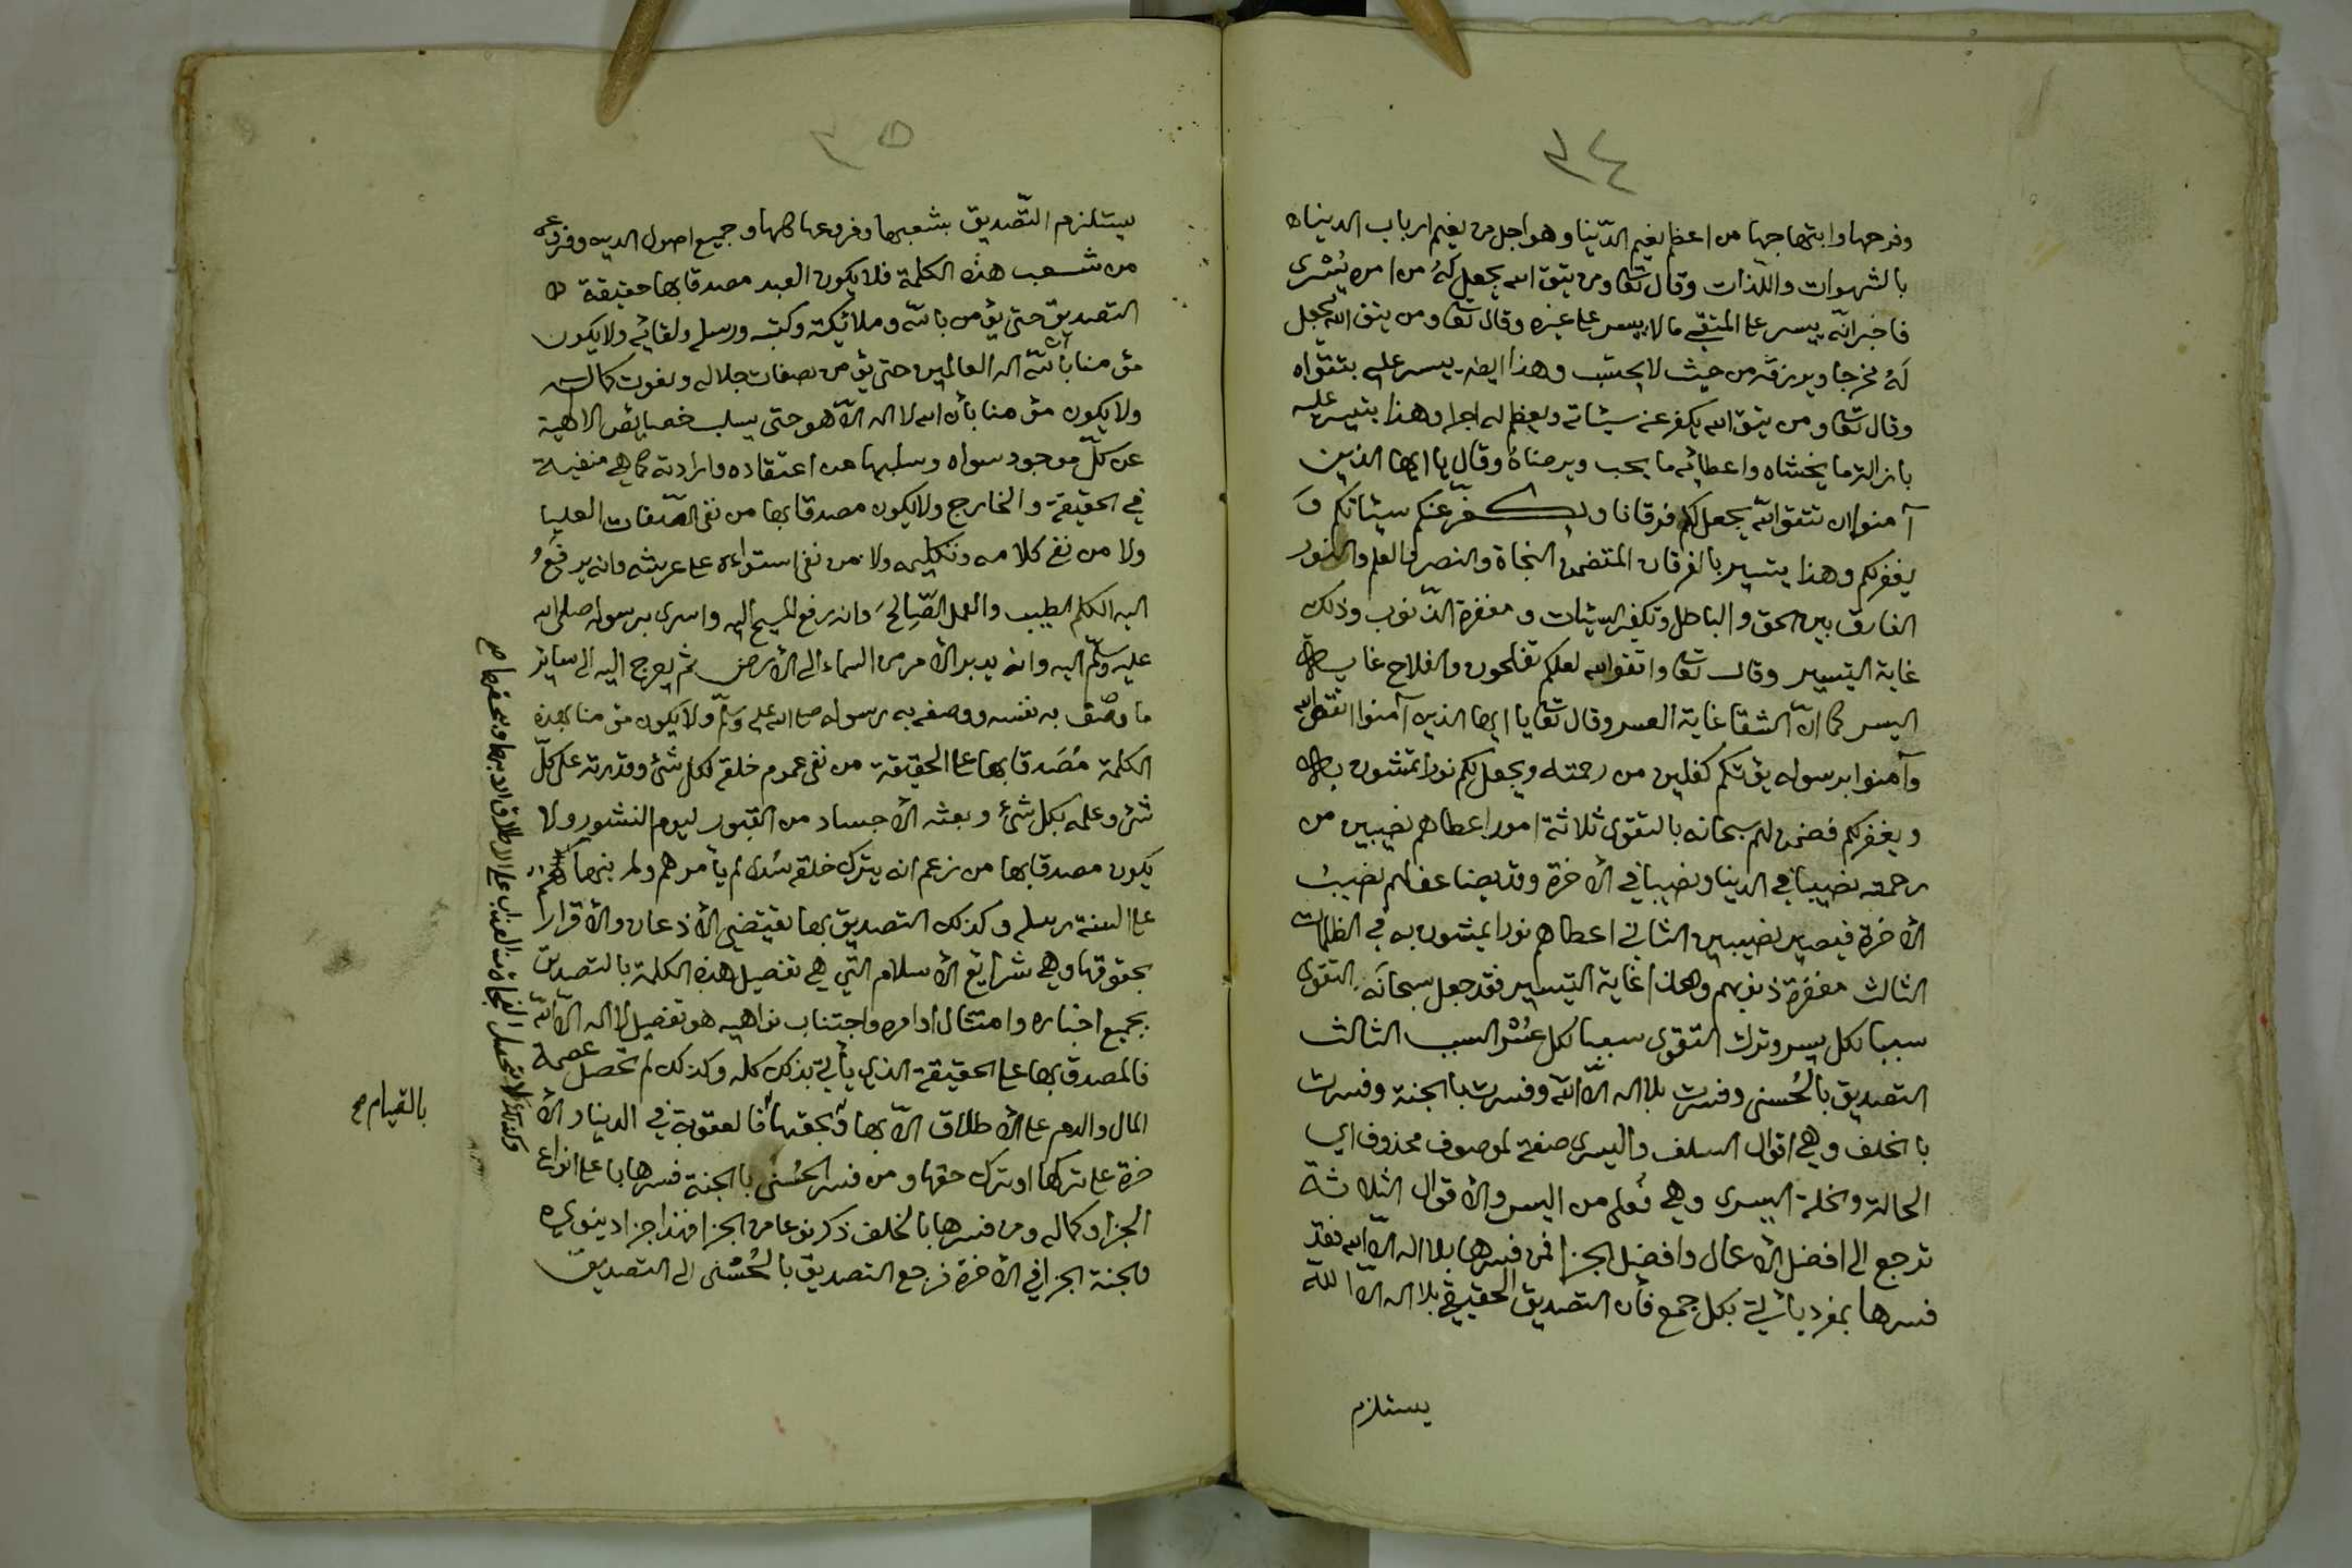 ٣٤
وفرحها وابتهاجها من اعظم نعيم الدّنيا وهو اجل من نعيم ارباب الدنياه
بالشهوات واللذات وقال تعا ومن يتق الله يجعل لهُ من امره يُسْرى
فاخبر انّه ييسر على المتقي ما لا ييسر على غيره وقال تعا ومن يتق الله يجعل
لهُ مخرجا ويرزقه من حيث لا يحتسب وهذا ايضا ييسر عليه بتقواه
وقال تعا ومن يتق الله يكفر عنه سيئاته ويعظم له اجرا وهذا يتيسر عليه
بازالة ما يخشاه واعطائه ما يحب ويرضاهُ وقال يا ايها الذين
آمنوا ان تتقوا الله يجعل لكم فرقانا ويكفّر عنكم سيئاتكم وَ
يغفر لكم وهذا يتيسير بالفرقان المتضمن النجاة والنصر والعلم والنور
الفارق بين الحق والباطل وتكفير السّيئات ومغفرة الذّنوب وذلك
غاية التيسير وقال تعا واتقوا الله لعلكم تفلحون والفلاح غاية
اليسر كما انّ الشقا غاية العسر وقال تعا يا ايها الذين آمنوا اتقوا الله
وآمنوا برسوله يؤتكم كفلين من رحمته ويجعل لكم نورا تمشون به
ويغفر لكم فضمن لهم سبحانه بالتقوى ثلاثة امور اعطاهم نصيبين من
رحمته نصيبا في الدنيا ونصيبا في الأخرة وقد يضاعف لهم نصيبُ
الأخرة فيصير نصيبين الثاني اعطاهم نورا يمشون به في الظلمات
الثالث مغفرة ذنوبهم وهذا غاية التيسير فقد جعل سبحانَه التقوى
سببا لكل يسر وترك التقوى سببا لكل عُسْر السبب الثالث
التصديق بالحُسنى وفسرت بلا اله الاّ اللّه وفسرت بالجنة وفسرت
بالخلف وهي اقوال السلف واليسرى صفة لموصوف محذوف اي
الحالة والخلة اليسرى وهي فُعلى من اليسر والأقوال الثلاثة
ترجع الى افضل الأعمال وافضل الجزا فمن فسرها بلا اله الاّ الله فقد
فسرها بمفرد يأتي بكل جمع فأن التصديق الحقيقي بلا اله الاّ اللّه
يستلزم
٣٥
يستلزم التّصديق بشعبها وفروعها كلها وجميع اصول الدين وفروعه
من شعب هذه الكلمة فلا يكون العبد مصدقا بها حقيقة
التصديق حتى يؤمن باللّه وملائكته وكتبه ورسله ولقائه ولا يكون
مؤمنا بأن اللّه اله العالمين حتى يؤمن بصفات جلاله ونعوت كماله
ولا يكون مؤمنا بأن الله لا اله الاّ هو حتى يسلب خصايص الالهية
عن كلّ موجود سواه وسلبها من اعتقاده وارادته كما هي منفية
في الحقيقة والخارج ولا يكون مصدقا بها من نفى الصّفات العليا
ولا من نفى كلامه وتكليمه ولا من نفى استواءه على عرشه وانه يرفعُ
اليه الكلم الطيب والعمل الصّالحَ وانه رفع المسيح اليه واسرى برسوله صلى الله
عليه وسلّم اليه وانه يدبر الأمر من السماء الى الأرض ثم يعرج اليه الى ساير
ما وصف به نفسه ووصفه به رسوله صلى الله عليه وسلّم ولا يكون مؤمنا بهذه
الكلمة مُصَدقا بها على الحقيقة من نفى عموم خلقه لكل شئ وقدرته على كلّ
شئ وعلمه بكل شئ وبعثه الأجساد من القبور ليوم النشور ولا
يكون مصدقا بها من زعم انه يترك خلقه سُدا لم يأمرهم ولم ينههم
على السنة رسله وكذلك التصديق بها يقتضي الأذعان والأقرار
بحقوقها وهي شرايع الأسلام التي هي تفصيل هذه الكلمة بالتصديق
بجميع اخباره وامتثال اوامره واجتناب نواهيه هو تفصيل لا اله الاّ اللّه
فالمصدق بها على الحقيقة الذي يأتي بذلك كله وكذلك لم تحصل عصمة
المال والدم على الأطلاق الاّ بها وبحقها فالعقوبة في الدنيا والأ
خرة على تركها او ترك حقها ومن فسر الحُسنى بالجنة فسرها باعلى انواع
الجزا وكماله ومن فسرها بالخلف ذكر نوعا من الجزا فهذا جزا دينوي
والجنة الجزا في الأخرة فرجع التصديق بالحُسْنى الى التصديق
وكذلك لا تحصل النجاة من العذاب على الاطلاق الا بها وبحقها صح
بالقيام صح